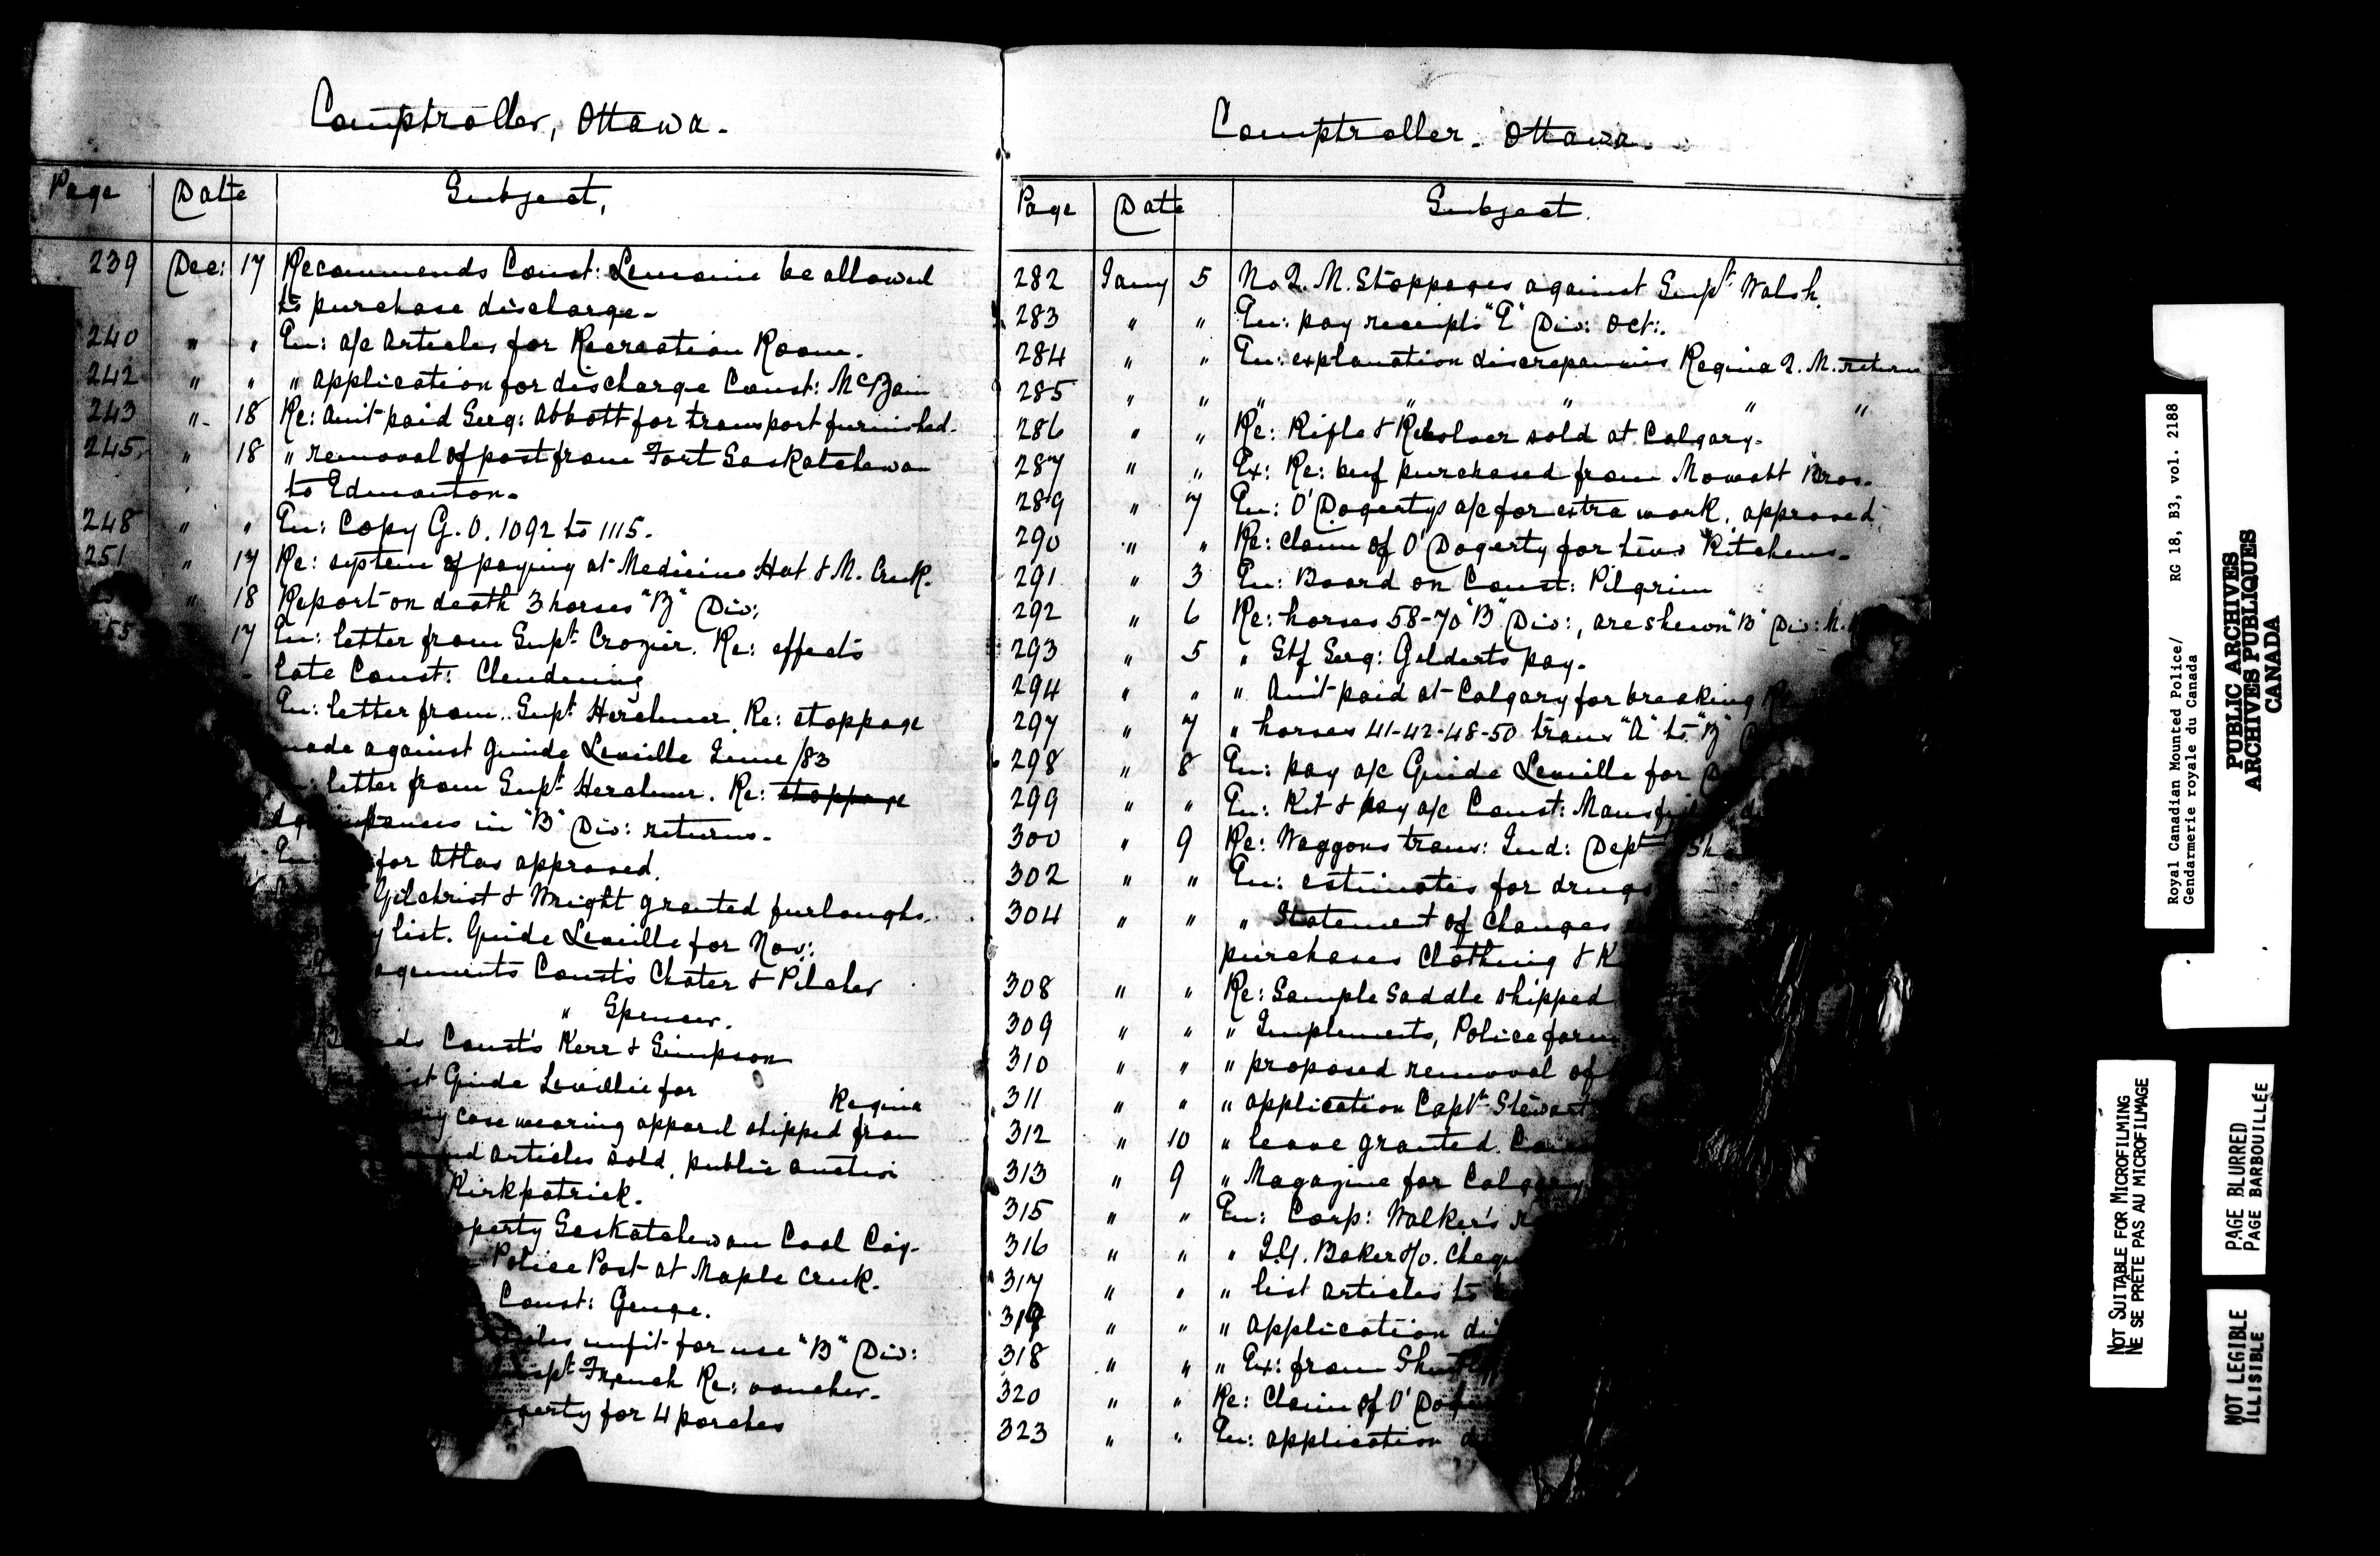 Comptroller, Ottawa.
Page Date Subject,
239 Dec: 17 Recommends Const: Lemoine be allowed
to purchase discharge.
240 " " En: a/c articles for Recreation Room.
242 " " " application for discharge Const: McBain
243 " 18 Re: amt paid Serg: Abbott for transport furnished.
245 " 18 " removal of post from Fort Saskatchewan
to Edmonton.
248 " " En: Copy G.O. 1092 to 1115.
251 " 17 Re: system of paying at Medicine Hat & M. Creek.
" 18 Report on death 3 horses "B" Div:
55 17 En: letter from Supt Crozier. Re: effects
late Const: Clendening
En: letter from Supt Herchmer. Re: stoppage
made against Guide Leveille June /83
letter from Supt Herchmer. Re: stoppage
in "B" Div: returns.
En: for Atlas approved.
Gilchrist & Wright granted furloughs.
list. Guide Leveille for Nov:
agements Const's Chater & Pilcher
" Spencer.
Const's Kerr & Simpson
Guide Leveille for
Regina
case wearing apparel shipped from
articles sold, public auction
Kirkpatrick.
perty Saskatchewan Coal Coy.
Police Post at Maple Creek.
Const: Genge.
unfit for use "B" Div:
Supt French Re: voucher.
gerty for 4 porches
Comptroller. Ottawa.
Page Date Subject.
282 Jany 5 No Q.M. Stoppages against Supt Walsh.
283 " " En: pay receipts "E" Div: Oct:.
284 " " En: explanation discrepancies Regina Q.M. return
285 " " " " " " "
286 " " Re: Rifle & Revolver sold at Calgary.
287 " " Ex: Re: beef purchased from Mowatt Bros.
289 " 7 En: O'Dogertys a/c for extra work, approved.
290 " " Re: claim of O'Dogerty for two Kitchens.
291 " 3 En: Board on Const: Pilgrim
292 " 6 Re: horses 58-70 "B" Div:, are shewn "B" Div:
293 " 5 " Stf Serg: Gilderts pay.
294 " " " Amt paid at Calgary for breaking
297 " 7 " horses 41-42-48-50 trans "A" to "B"
298 " 8 En: pay a/c Guide Leveille for
299 " " En: Kit & pay a/c Const:
300 " 9 Re: Waggons trans: Ind: Dept
302 " " En: estimates for drugs
304 " " " Statement of Changes
purchases Clothing & K
308 " " Re: Sample Saddle shipped
309 " " " Implements, Police farm
310 " " " proposed removal of
311 " " " application Capt Stewart
312 " 10 " leave granted.
313 " 9 " Magazine for Calgary
315 " " En: Corp: Walker's
316 " " " I.G. Baker &Co. Cheque
317 " " " list articles to
319 " " " application
318 " " " Ex: from
320 " " Re: Claim of O'
323 " " En: application
Royal Canadian Mounted Police/ RG 18, B3, vol. 2188
Gendarmerie royale du Canada
PUBLIC ARCHIVES
ARCHIVES PUBLIQUES
CANADA
NOT SUITABLE FOR MICROFILMING
NE SE PRÊTE PAS AU MICROFILMAGE
PAGE BLURRED
PAGE BARBOUILLÉE
NOT LEGIBLE
ILLISIBLE